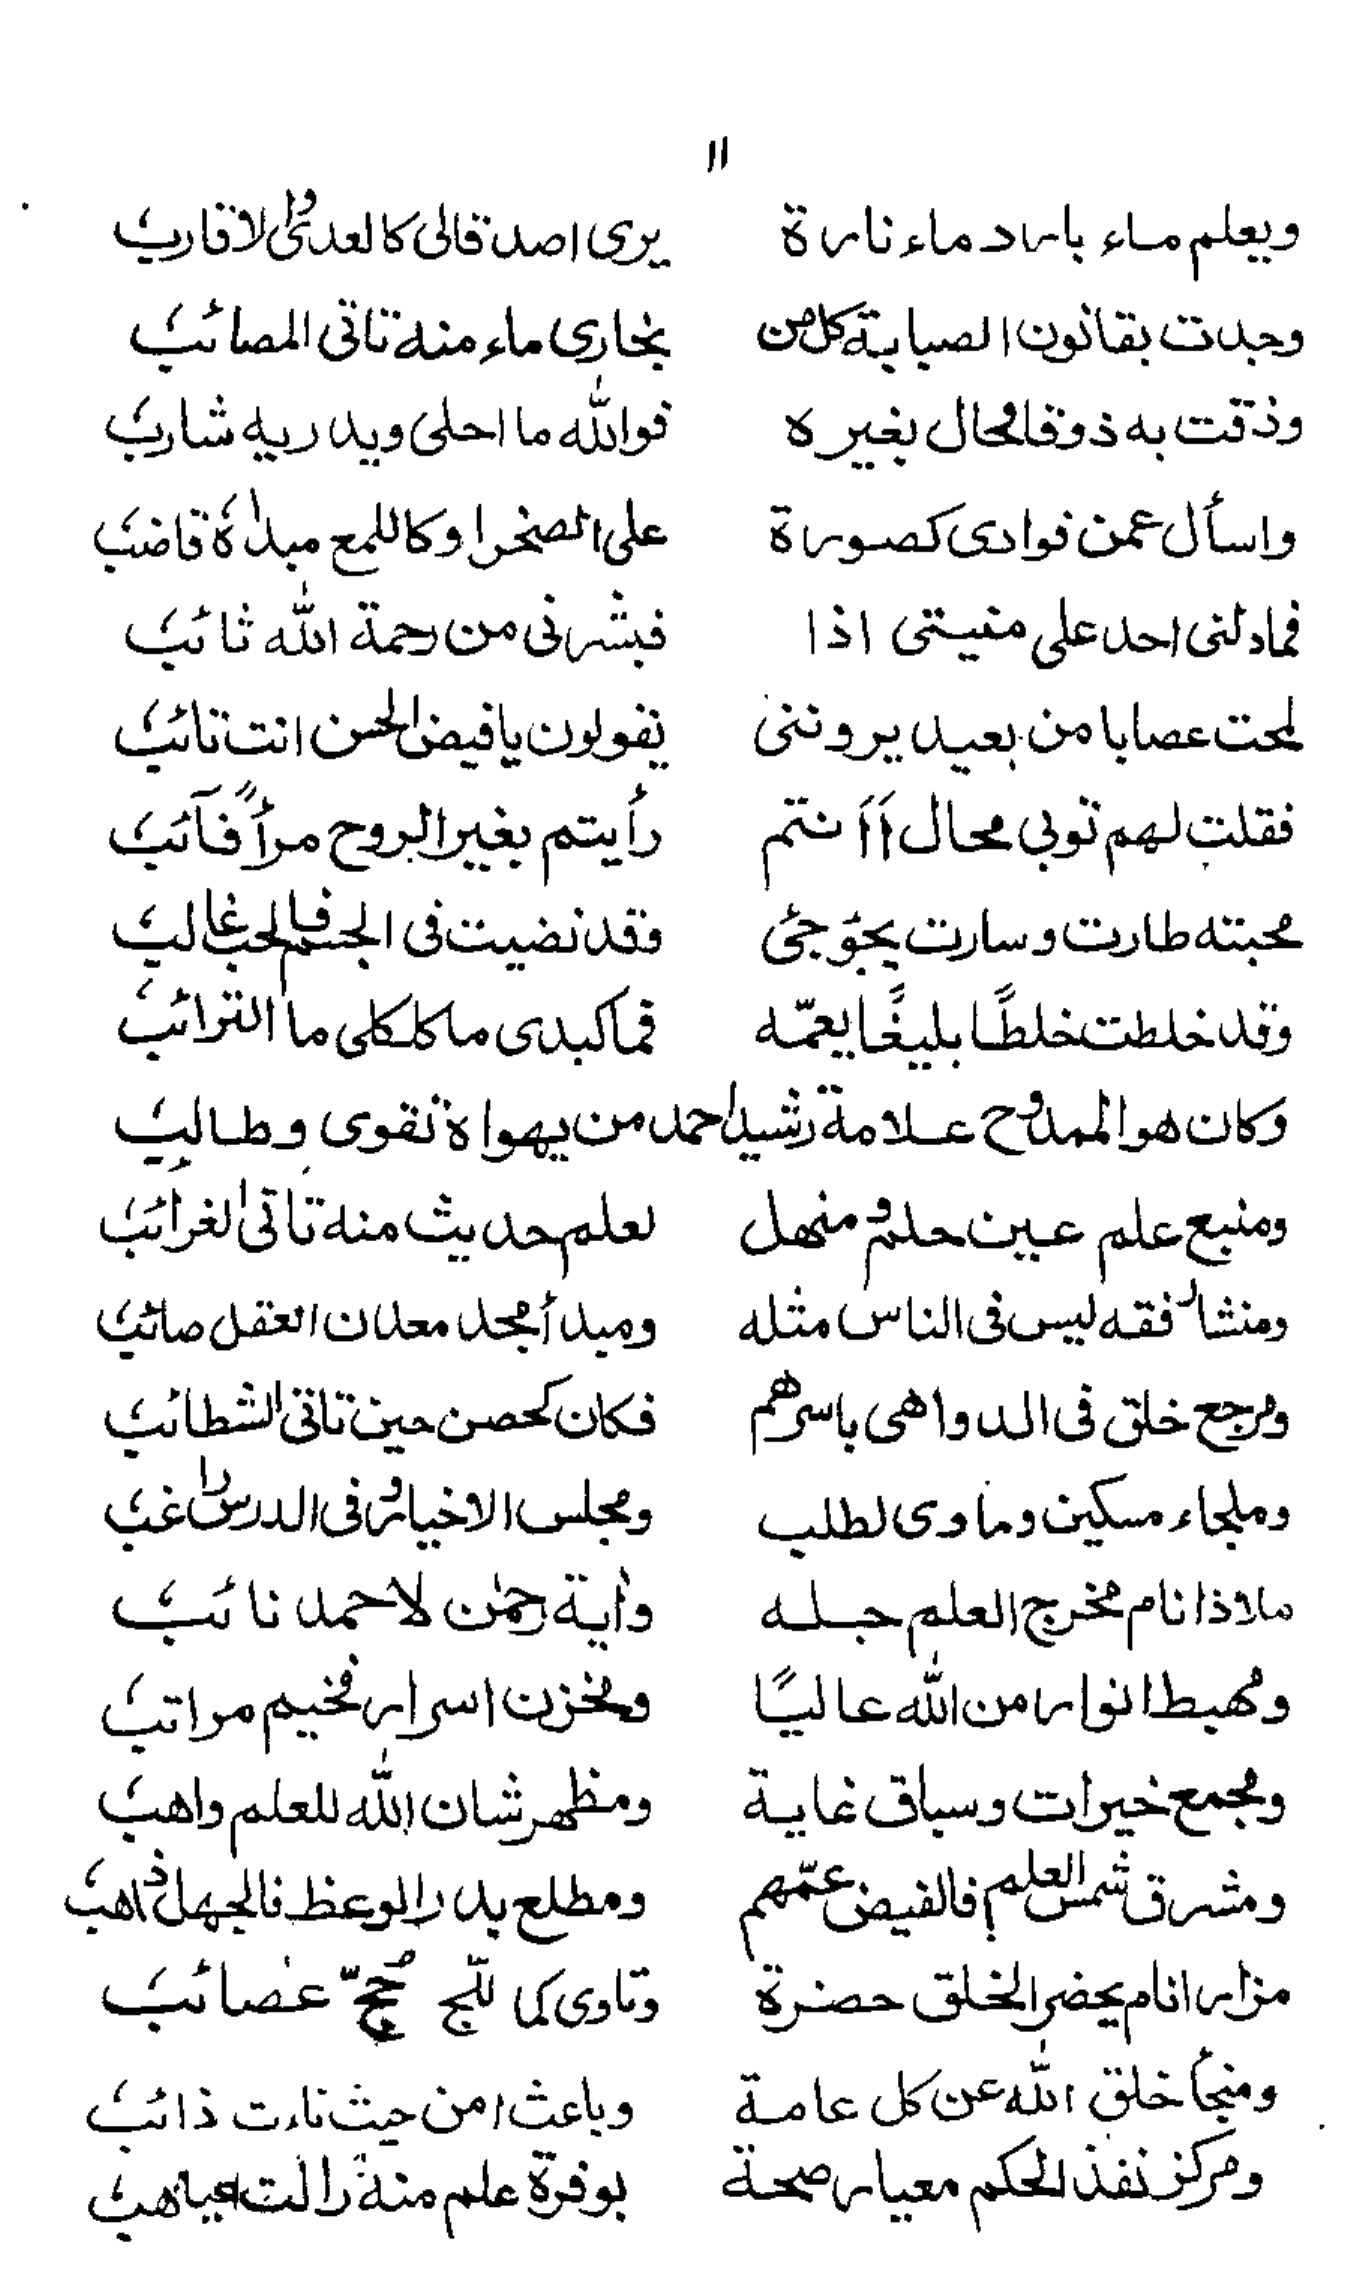 ١١
ويعلم ماء بارد ماء نارة يرى اصدقائى كالعدىٰ والاقارب
وجدت بقانون الصبابة كل من يجارى ماء منه تاتى المصائب
وذقت به ذوقا محال بغيره فوالله ما احلى ويدريه شارب
واسأل عمن فوادى كصورة على الصخر او كاللمع مبداه قاضب
فمادلنى احد على منيتى اذا فبشرنى من رحمة الله ثائب
لمحت عصابا من بعيد يرونني يقولون يا فيض الحسن انت تائب
فقلت لهم توبي محال أأنتم رأيتم بغير الروح مرأً فآئب
محبته طارت وسارت بجوّجئ فقد نضيت فى الجسم فالحب غالب
وقد خلطت خلطًا بليغًا يعمّه فما كبدى ما كلكلى ما الترائب
وكان هو الممدوح علامة رشيد احمد من يهواه تقوى وطالب
ومنبع علم عين حلم ومنهل لعلم حديث منه تاتى الغرائب
ومنشاء فقه ليس فى الناس مثله ومبدأ مجد معدن العقل صائب
ومرجع خلق فى الدواهى باسرهم فكان كحصن حين تاتى الشطائب
وملجاء مسكين وماوى لطلب ومجلس الاخيار وفى الدرس راغب
ملاذ انام مخرج العلم جله واية رحمٰن لاحمد نائب
ومهبط انوار من الله عاليًا ومخزن اسرار فخيم مراتب
ومجمع خيرات وسباق غاية ومظهر شان الله للعلم واهب
ومشرق شمس العلم فالفيض عمّهم ومطلع بدر الوعظ فالجهل ذاهب
مزار انام يحضر الخلق حضرة وتاوى كما للّج حُجّ عصائب
ومنجأ خلق الله عن كل عامة وباعث امن حيث ناءت ذائب
ومركز نفذ الحكم معيار صحة بوفرة علم منه زالت غياهب